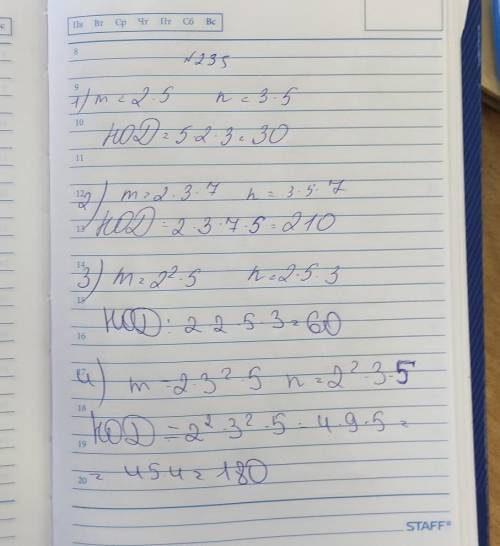 Пн Вт Ср Чт Пт Сб Вс
8
№235
9
1) m = 2·5 n = 3·5
10
НОД = 5·2·3 = 30
11
12
2) m = 2·3·7 n = 3·5·7
13
НОД = 2·3·7·5 = 210
14
3) m = 2²·5 n = 2·5·3
15
НОД: 2 2·5·3 = 60
16
17
4) m = 2·3²·5 n = 2²·3·5
18
НОД = 2²·3²·5 = 4·9·5 =
19
= 45 4 = 180
20
STAFF®